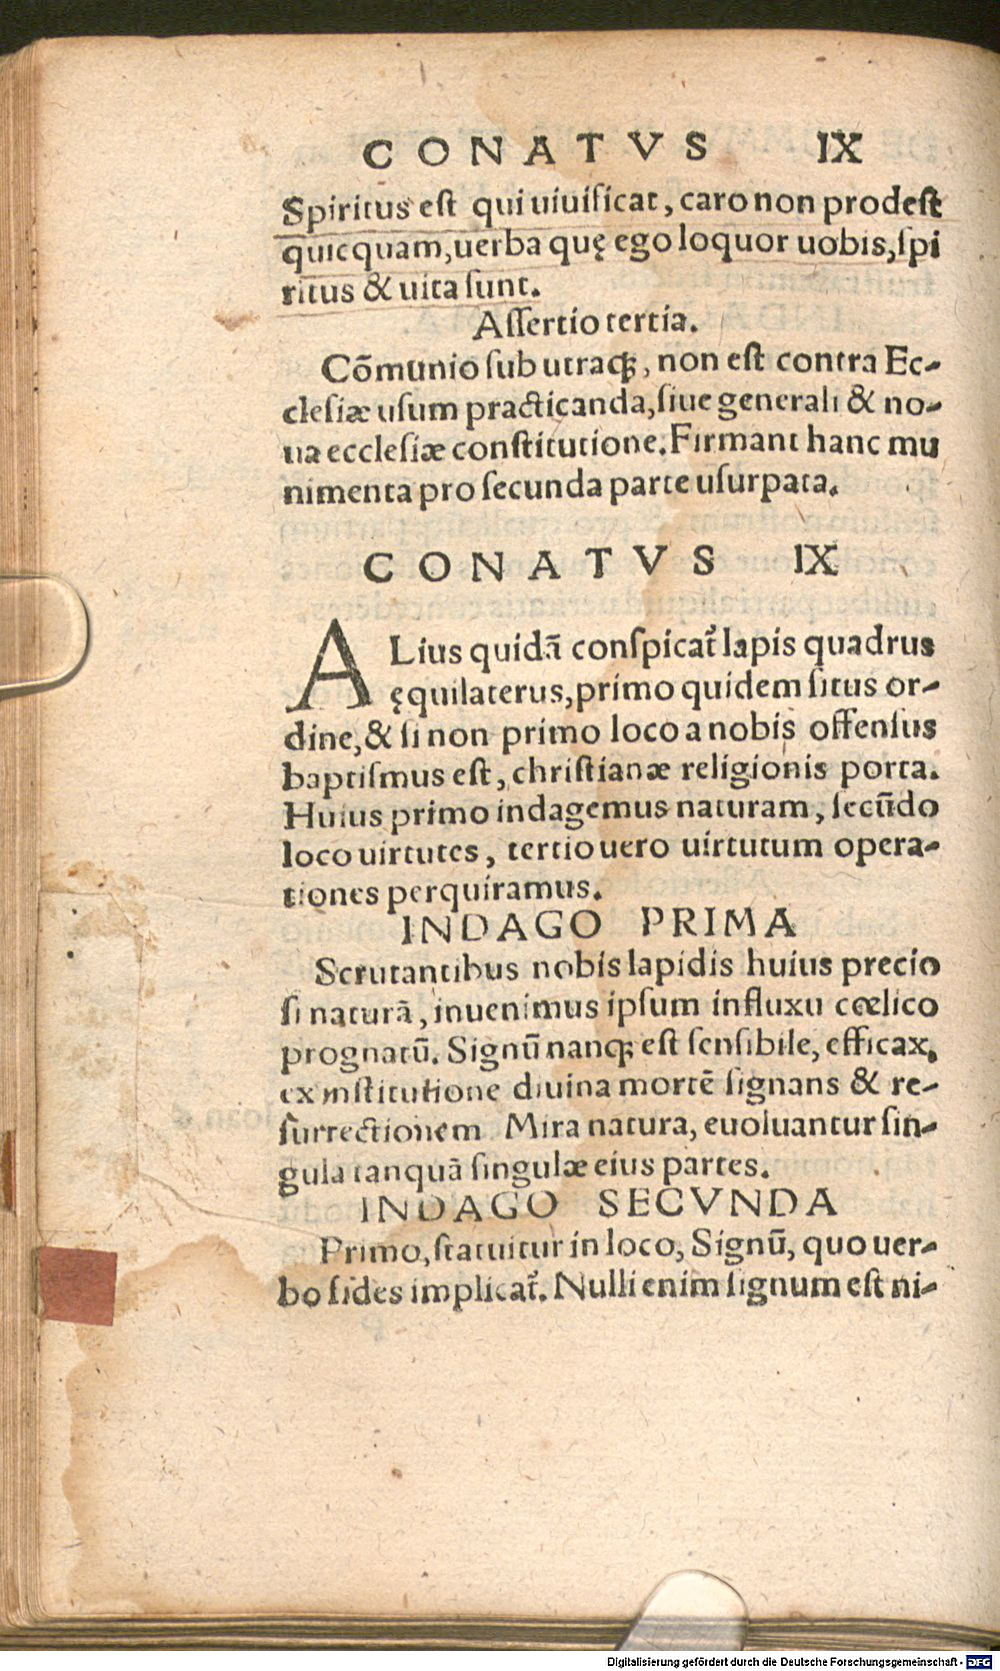 CONATVS IX
Spiritus est qui uiuificat, caro non prodest
quicquam, uerba quę ego loquor uobis, spi
ritus & uita sunt.
Assertio tertia.
Cõmunio sub utraqꝫ, non est contra Ec-
clesiæ usum practicanda, siue generali & no-
ua ecclesiæ constitutione. Firmant hanc mu
nimenta pro secunda parte usurpata.
CONATVS IX
ALius quidã conspicat᷑ lapis quadrus
ęquilaterus, primo quidem situs or-
dine, & si non primo loco a nobis offensus
baptismus est, christianæ religionis porta.
Huius primo indagemus naturam, secũdo
loco uirtutes, tertio uero uirtutum opera-
tiones perquiramus.
INDAGO PRIMA
Scrutantibus nobis lapidis huius precio
si naturã, inuenimus ipsum influxu cœlico
prognatũ. Signũ nanqꝫ est sensibile, efficax,
ex institutione diuina mortẽ signans & re-
surrectionem Mira natura, euoluantur sin-
gula tanquã singulæ eius partes.
INDAGO SECVNDA
Primo, statuitur in loco, Signũ, quo uer-
bo fides implicat᷑. Nulli enim signum est ni-
Digitalisierung gefördert durch die Deutsche Forschungsgemeinschaft - DFG